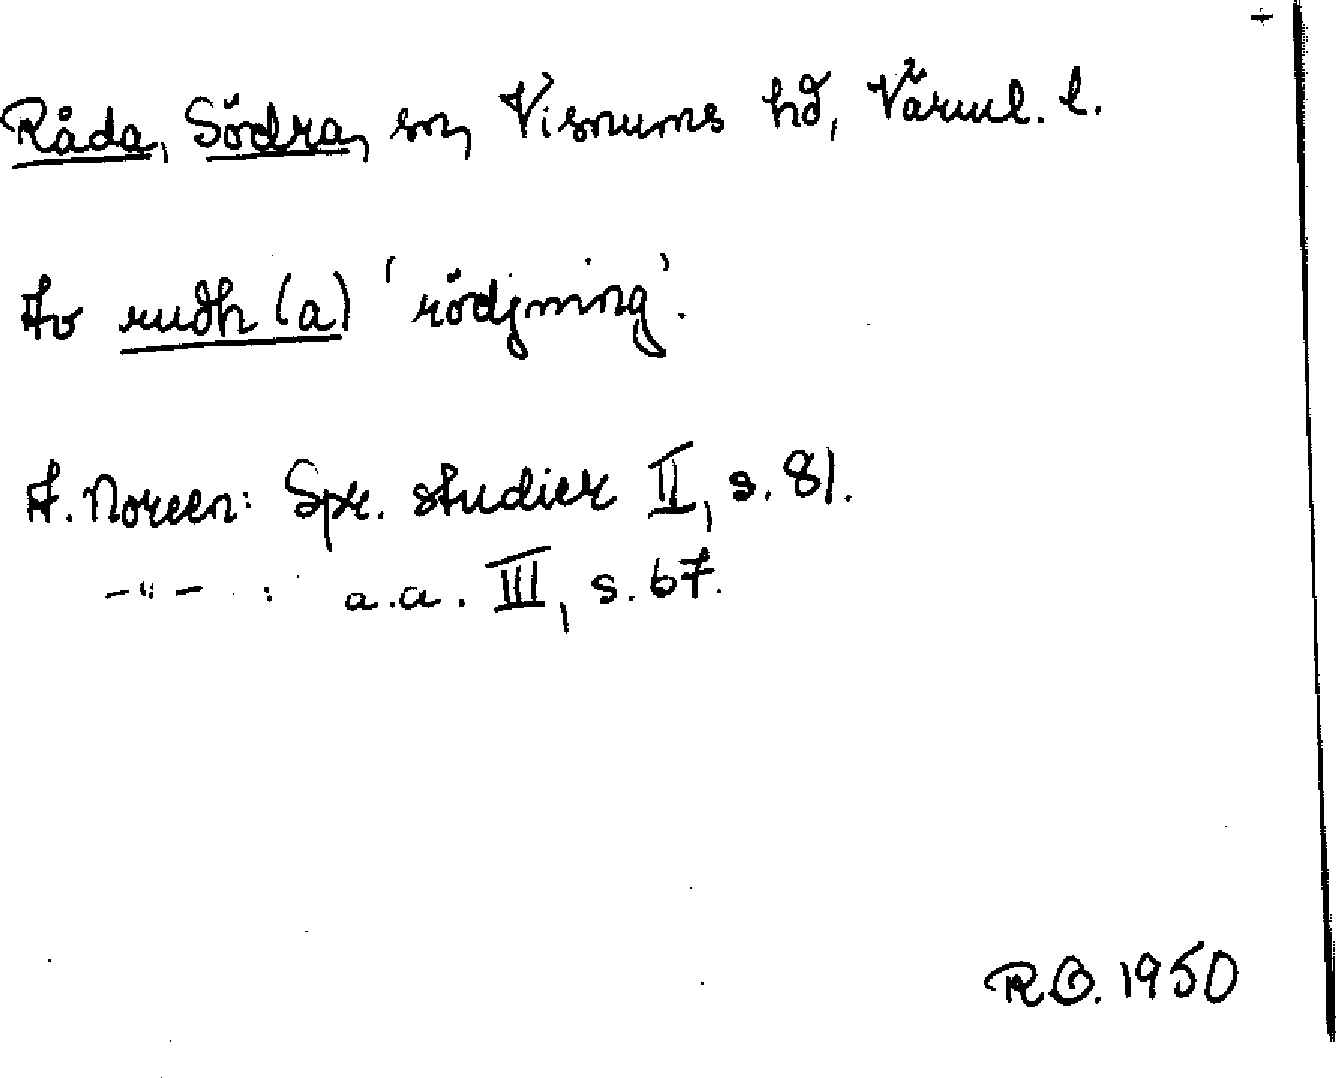 Råda, Södra, sn, Visnums hd, Värml. l.
Av rudh (a) 'rödjning'.
A. Noreen: Spr. studier II, s. 81.
-"- : a.a. III, s. 67.
R.O. 1950